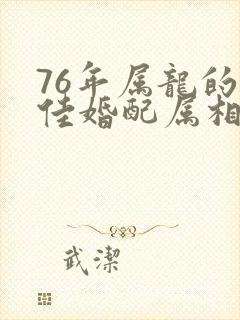 76年属龍的
佳婚配属相
武潔